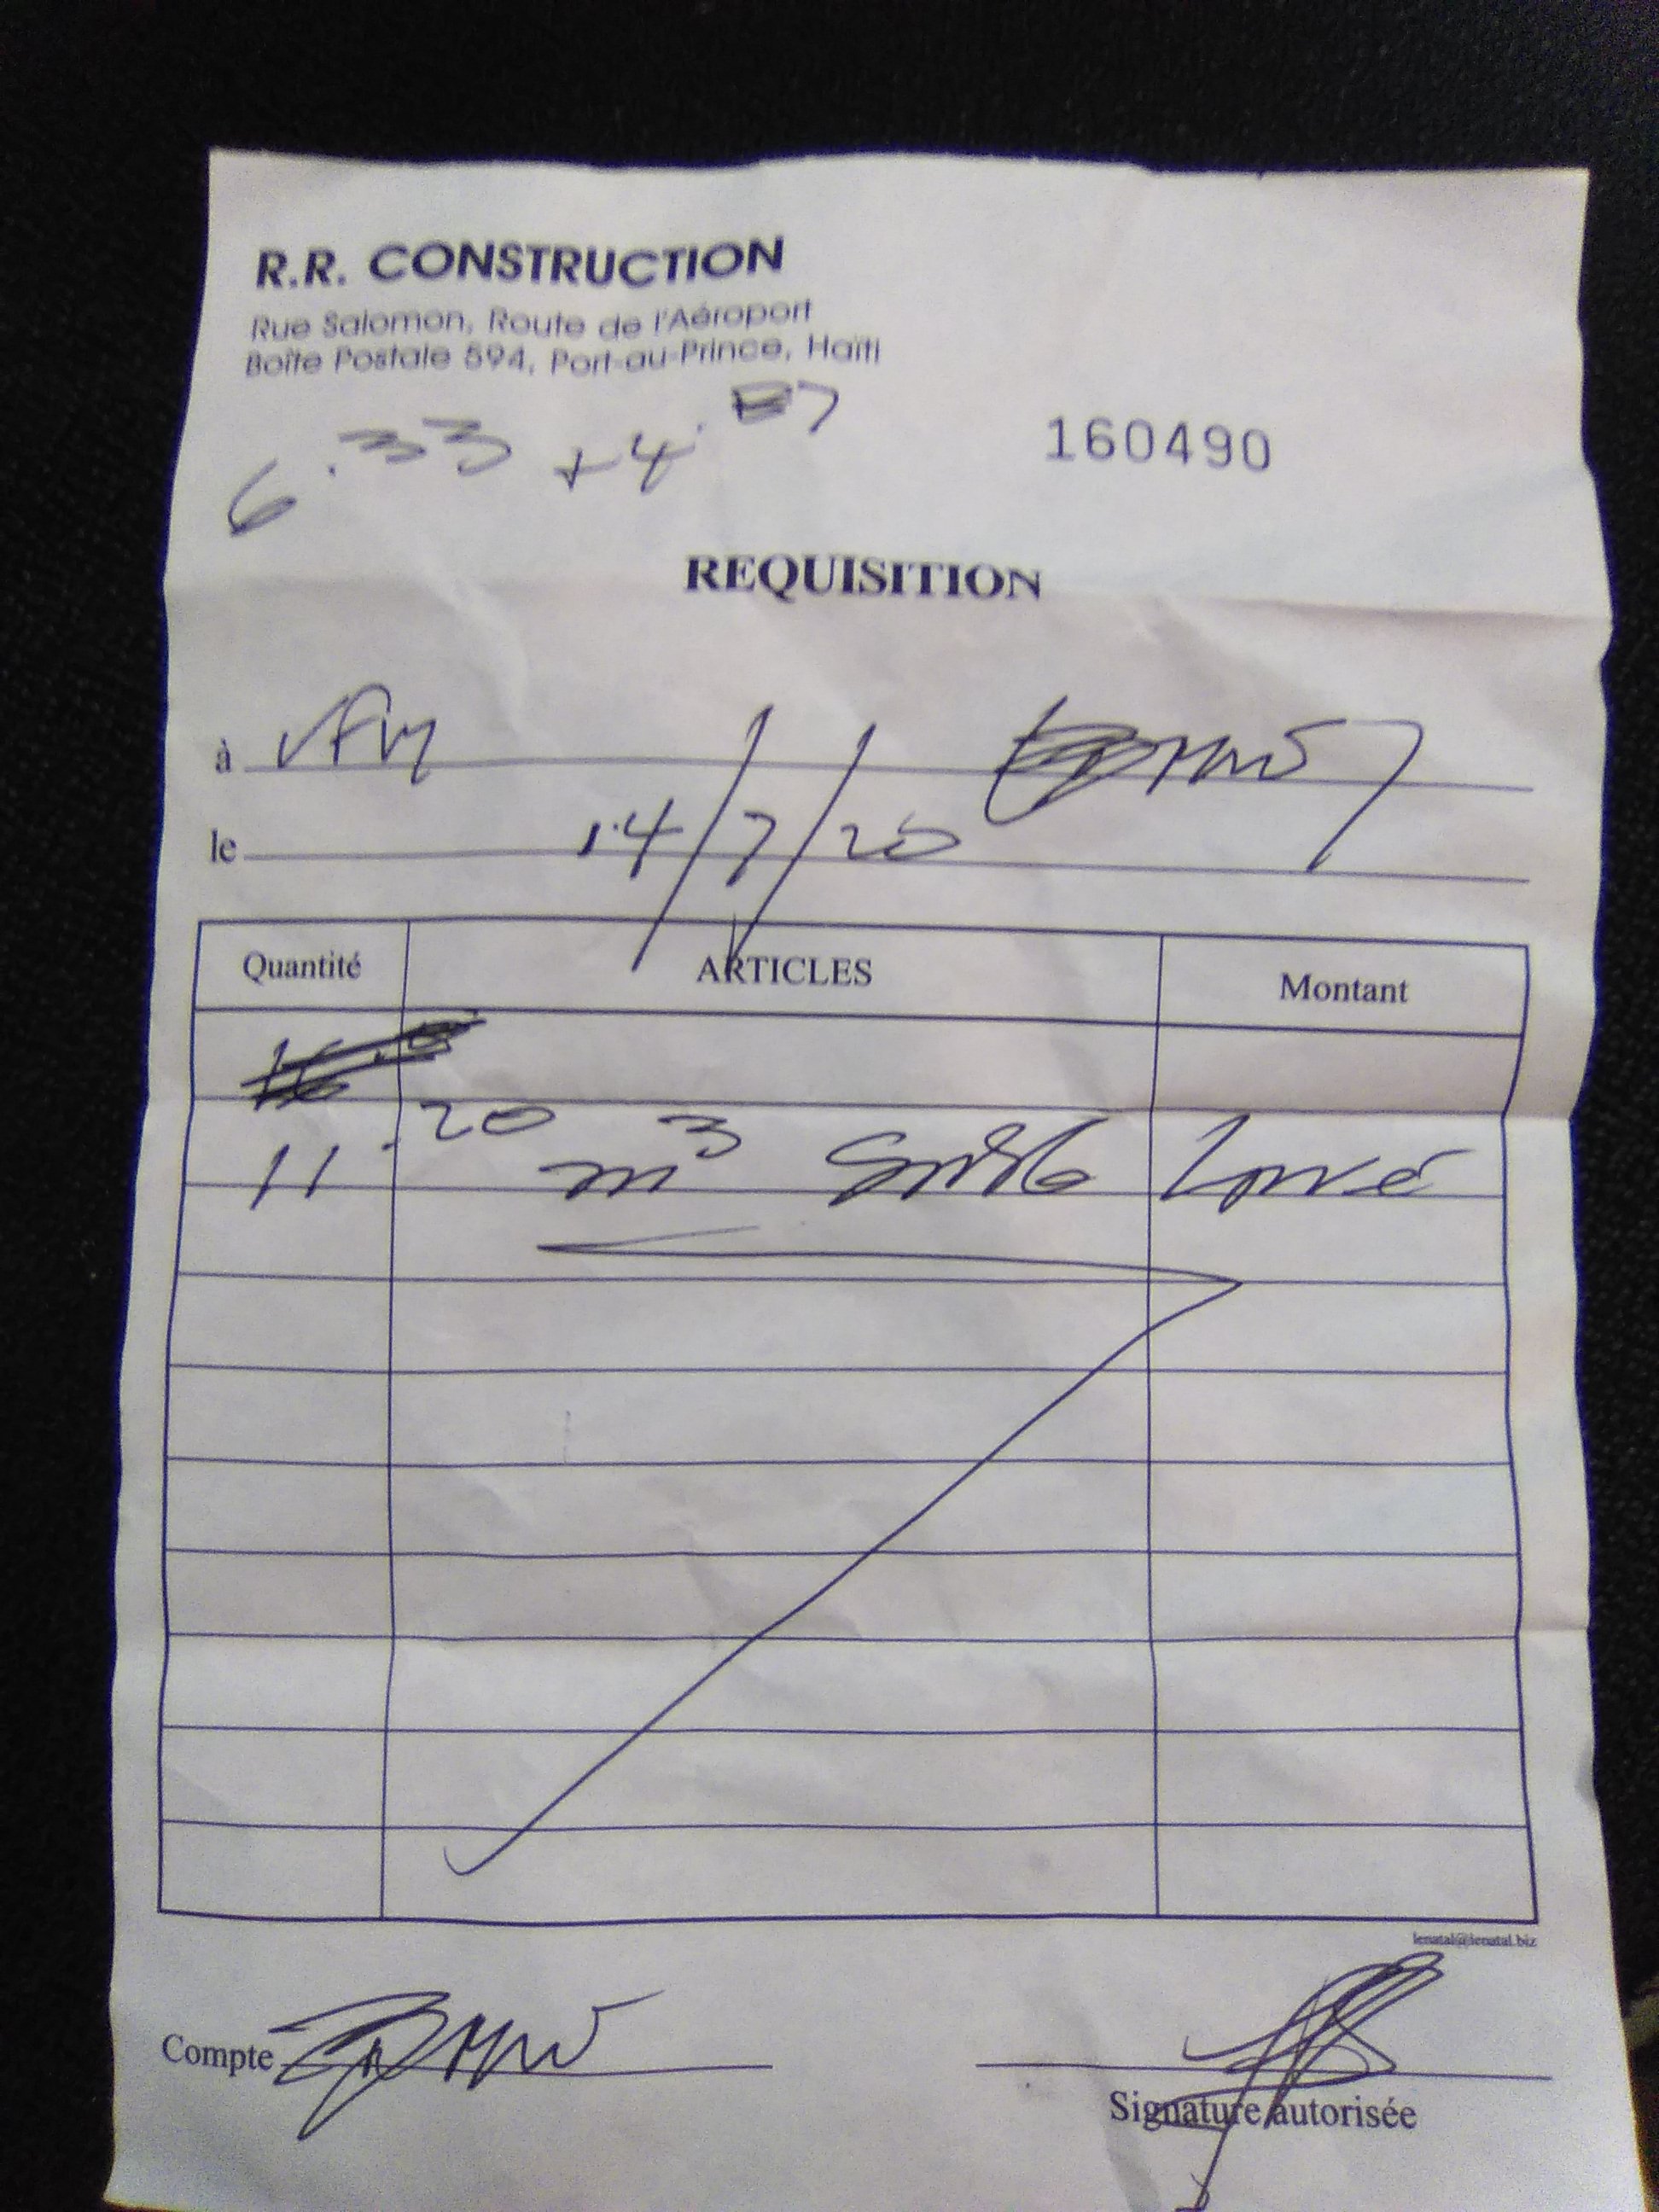 R.R. CONSTRUCTION
Rue Salomon, Route de l'Aéroport
Boîte Postale 594, Port-au-Prince, Haïti
6.33 + 4.87
160490
REQUISITION
à VFM
le 14/7/20
Quantité ARTICLES Montant
11.20 m3 Sable Lavé
lenatal@lenatal.biz
Compte
Signature autorisée